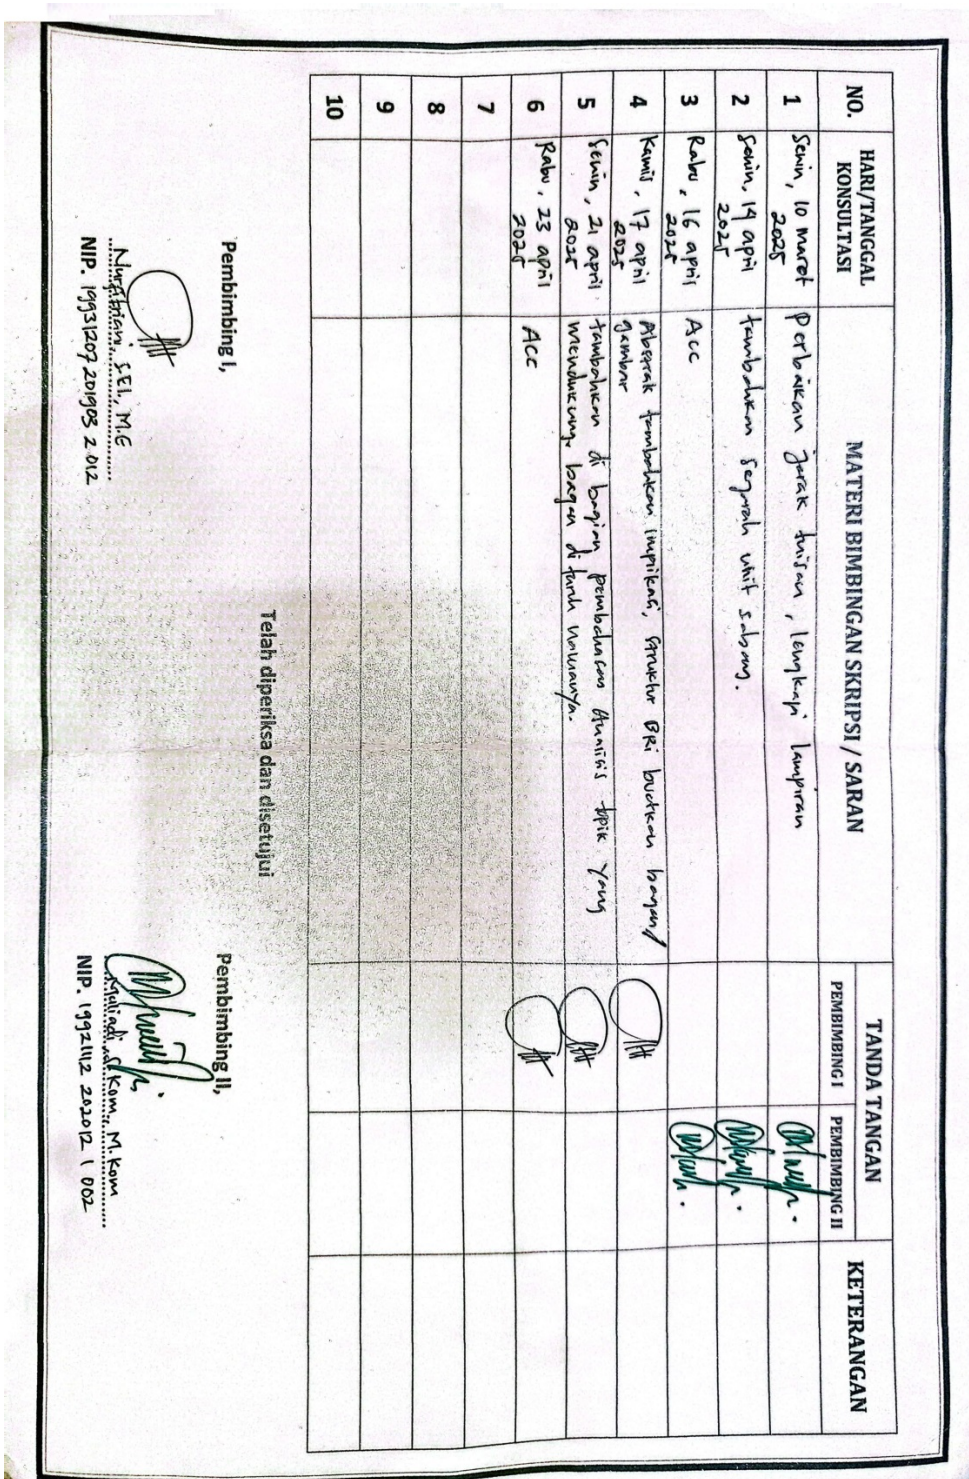 NO.
HARI/TANGGAL KONSULTASI
MATERI BIMBINGAN SKRIPSI / SARAN
TANDA TANGAN
PEMBIMBING I
PEMBIMBING II
KETERANGAN
1
Senin, 10 maret
2025
Perbaikan jarak tulisan, lengkapi lampiran
2
Senin, 14 april
2025
tambahkan sejarah unit sabang.
3
Rabu, 16 april
2025
Acc
4
Kamis, 17 april
2025
Abstrak tambahkan implikasi, struktur BRI buatkan bagan/
gambar
5
Senin, 21 april
2025
tambahkan di bagian pembahasan Analisis topik yang
mendukung, bagan di taruh namanya.
6
Rabu, 23 april
2025
Acc
7
8
9
10
Telah diperiksa dan disetujui
Pembimbing I,
Nurfitriani, S.EI., M.E
NIP. 19931207 201903 2 012
Pembimbing II,
Muliadi, S.Kom., M.Kom
NIP. 19921112 202012 1 002